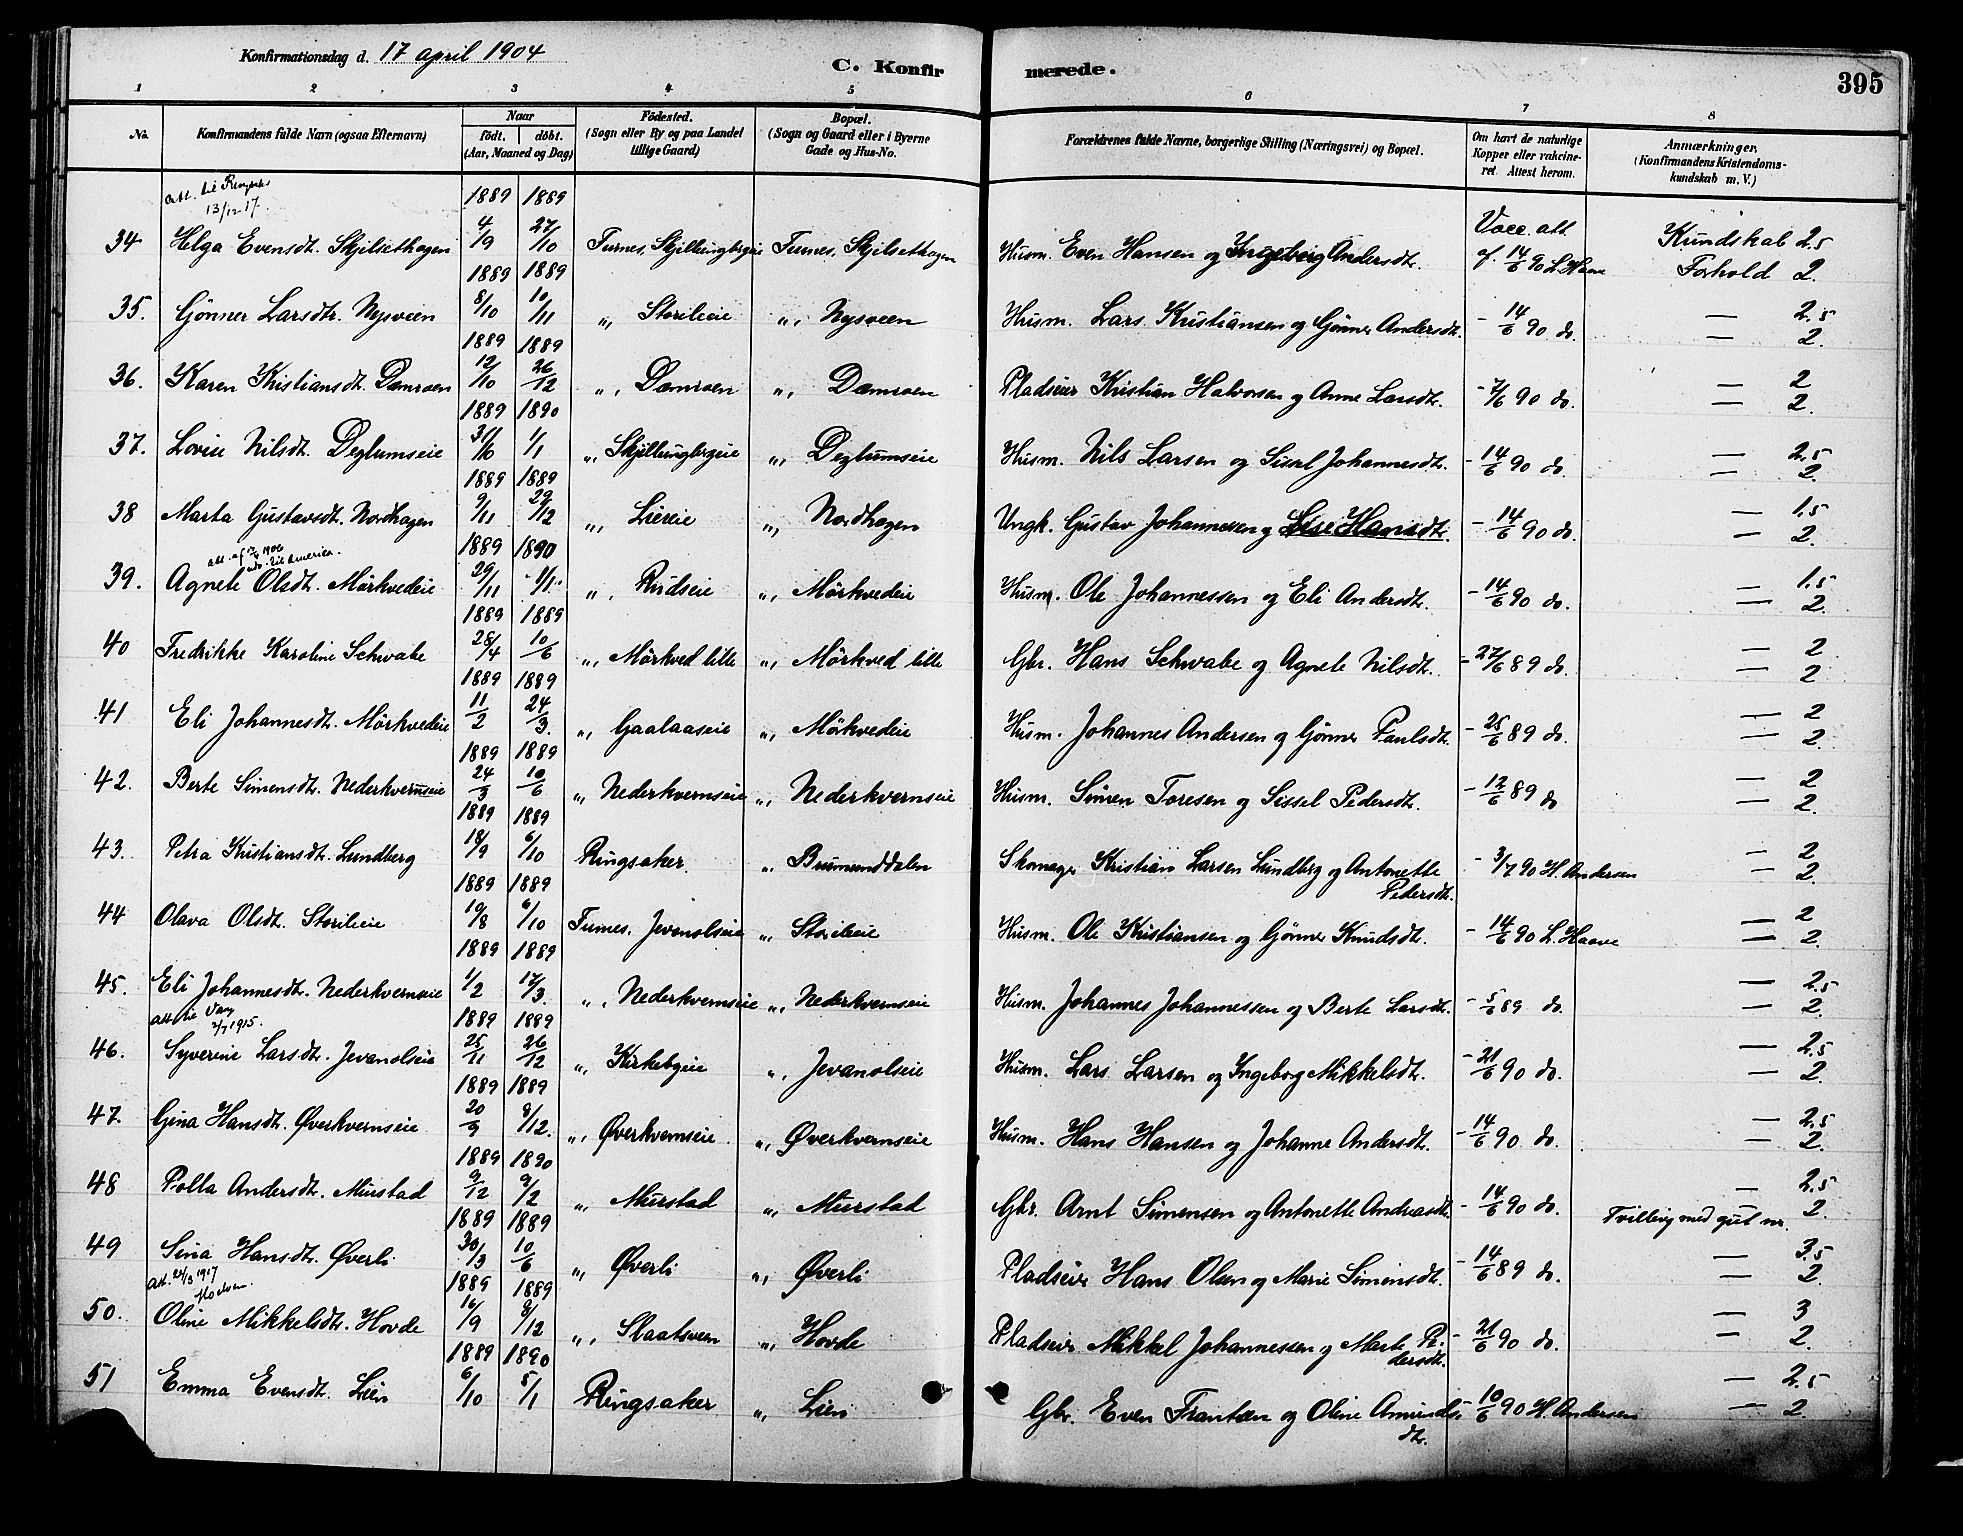 Konfirmationsdag d. 17 april 1904
C. Konfirmerede.
395
1 2 3 4 5 6 7 8
No.
Konfirmandens fulde Navn (ogsaa Efternavn)
Naar
født. døbt.
(Aar, Maaned og Dag)
Fødested.
(Sogn eller By og paa Landet
tillige Gaard)
Bopæl.
(Sogn og Gaard eller i Byerne
Gade og Hus-No.
Forældrenes fulde Navne, borgerlige Stilling (Næringsvei) og Bopæl.
Om havt de naturlige
Kopper eller vakcine-
ret. Attest herom.
Anmærkninger.
(Konfirmandens Kristendoms-
kundskab m. V.)
att. til
13/12 17.
1889 1889
34 Helga Evensdt. Skjilsethagen 4/9 27/10 Furnes, Skjellungbergeie Furnes, Skjilsethagen Husm. Even Hansen og Ingeborg Andersdt. Vacc. att. af 14/6 90 L. Haave Kundskab 2.5 Forhold 2.
1889 1889
35. Gønner Larsdtr. Nysveen 8/10 10/11 „ Storileie „ Nysveen Husm. Lars Kristiansen og Gønner Andersdt. - 14/6 90 do. — 2.5 — 2.
1889 1889
36. Karen Kristiansdt. Damroen 12/10 26/12 „ Damroen „ Damroen Pladseier Kristian Halvorsen og Anne Larsdt. - 7/6 90 do. — 2 — 2.
1889 1890
37. Lovise Nilsdt. Deglumseie 31/10 1/1 „ Skjellungbrgeie „ Deglumseie Husm. Nils Larsen og Sissel Johannesdt. - 14/6 90 do. — 2.5 — 2.
1889 1889
38 Marta Gustavsdt. Nordhagen 9/11 29/12 „ Liereie „ Nordhagen Ungk. Gustav Johannessen og Lise Hansdt. - 14/6 90 do. — 1.5 — 2.
att. af 1906
til Amerika.
1889 1890
39. Agnete Olsdt. Mørkvedeie 29/11 1/1 „ Rudseie „ Mørkvedeie Husm. Ole Johannessen og Eli Andersdt. - 14/6 90 do. — 1.5 — 2.
1889 1889
40 Fredrikke Karoline Schwabe 28/4 10/6 „ Mørkved lille „ Mørkved lille Gbr. Hans Schwabe og Agnete Nilsdt. - 27/6 89 do. — 2 — 2
1889 1889
41 Eli Johannesdt. Mørkvedeie 11/2 24/3. „ Gaalaaseie „ Mørkvedeie Husm. Johannes Andersen og Gønner Paulsdt. - 25/6 89 do. — 2 — 2.
1889 1889
42. Berte Simensdt. Nederkvernseie 24/3 10/6 „ Nederkvernseie „ Nederkvernseie Husm. Simen Toresen og Sissel Pedersdt. - 12/6 89 do — 2 — 2.
1889 1889
43. Petra Kristiansdt. Lundberg 18/9 6/10 Ringsaker. „ Brumunddalen Skomager Kristian Larsen Lundberg og Antonette Pedersdt. - 3/7 90 H. Andersen — 2 — 2.
1889 1889
44 Olava Olsdt. Storileie 19/8 6/10 Furnes. Jevanolseie „ Storileie Husm. Ole Kristiansen og Gønner Knudsdt. - 14/6 90 L. Haave — 2 — 2.
1889 1889
45. Eli Johannesdt. Nederkvernseie 1/2 17/3. „ Nederkvernseie „ Nederkvernseie Husm. Johannes Johannessen og Berte Larsdt. - 5/6 89 do. — 2.5 — 2.
att til Vang
2/7 1915.
1889 1889
46. Syverine Larsdt. Jevanolseie 25/11 26/12 „ Kirkebyeie „ Jevanolseie Husm. Lars Larsen og Ingeborg Mikkelsdt. - 21/6 90 do. — 2.5 — 2.
1889 1889
47. Gina Hansdt. Øverkvernseie 20/9 8/12. „ Øverkvernseie „ Øverkvernseie Husm. Hans Hansen og Johanne Andersdt. - 14/6 90 do. — 2.5 — 2.
1889 1890
48 Polla Andersdt. Murstad 9/12 9/2 „ Murstad „ Murstad Gbr. Arnt Simensen og Antonette Andreasdt. - 14/6 90 do. — 2.5 — 2. Tvilling med gut nr.
1889 1889
49 Sina Hansdt. Øverli 30/3 10/6 „ Øverli „ Øverli Pladseier Hans Olsen og Marie Simensdt. - 14/6 89 do. — 3.5 — 2.
att. 24/3 1917
1889 1889
50. Oline Mikkelsdtr. Hovde 16/9 8/12 „ Slaatsveen „ Hovde Pladseier Mikkel Johannessen og Marte Pedersdt. - 21/6 90 do. — 3 — 2.
1889 1890
51 Emma Evensdt. Lien 6/10 5/1 Ringsaker „ Lien Gbr. Even Frantzen og Oline Amundsdtr. - 10/6 90 H. Andersen — 2.5 — 2.